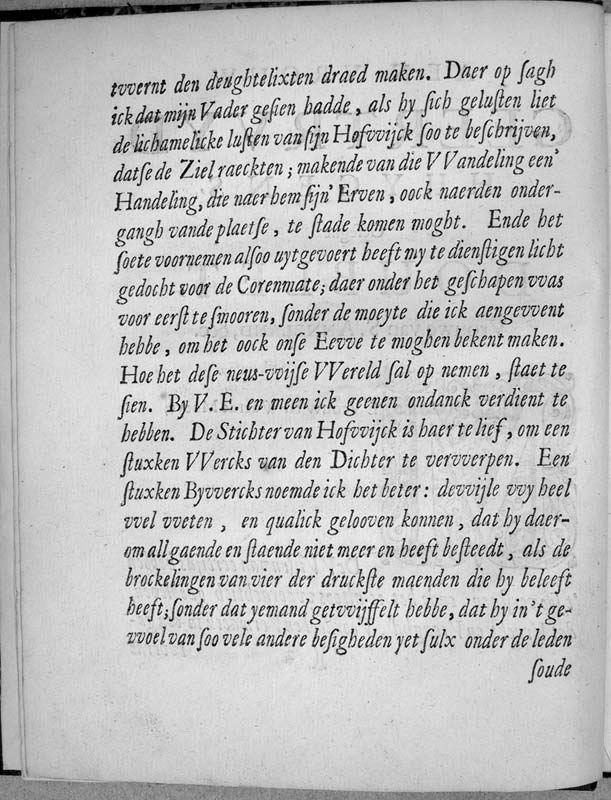 tvvernt den deughtelixten draed maken. Daer op ſagh
ick dat mijn Vader geſien hadde, als hy ſich geluſten liet
de lichamelicke luſten van ſijn Hofvvijck ſoo te beſchrijven,
datſe de Ziel raeckten; makende van die VVandeling een'
Handeling, die naer hem ſijn' Erven, oock naerden onder-
gangh vande plaetſe, te ſtade komen moght. Ende het
ſoete voornemen alſoo uytgevoert heeft my te dienſtigen licht
gedocht voor de Corenmate; daer onder het geſchapen vvas
voor eerſt te ſmooren, ſonder de moeyte die ick aengevvent
hebbe, om het oock onſe Eevve te moghen bekent maken.
Hoe het deſe neus-vvijſe VVereld ſal op nemen, ſtaet te
ſien. By V. E. en meen ick geenen ondanck verdient te
hebben. De Stichter van Hofvvijck is haer te lief, om een
ſtuxken VVercks van den Dichter te vervverpen. Een
ſtuxken Byvvercks noemde ick het beter: devvijle vvy heel
vvel vveten, en qualick gelooven konnen, dat hy daer-
om all gaende en ſtaende niet meer en heeft beſteedt, als de
brockelingen van vier der druckſte maenden die hy beleeft
heeft; ſonder dat yemand getvvijffelt hebbe, dat hy in't ge-
vvoel van ſoo vele andere beſigheden yet ſulx onder de leden
ſoude